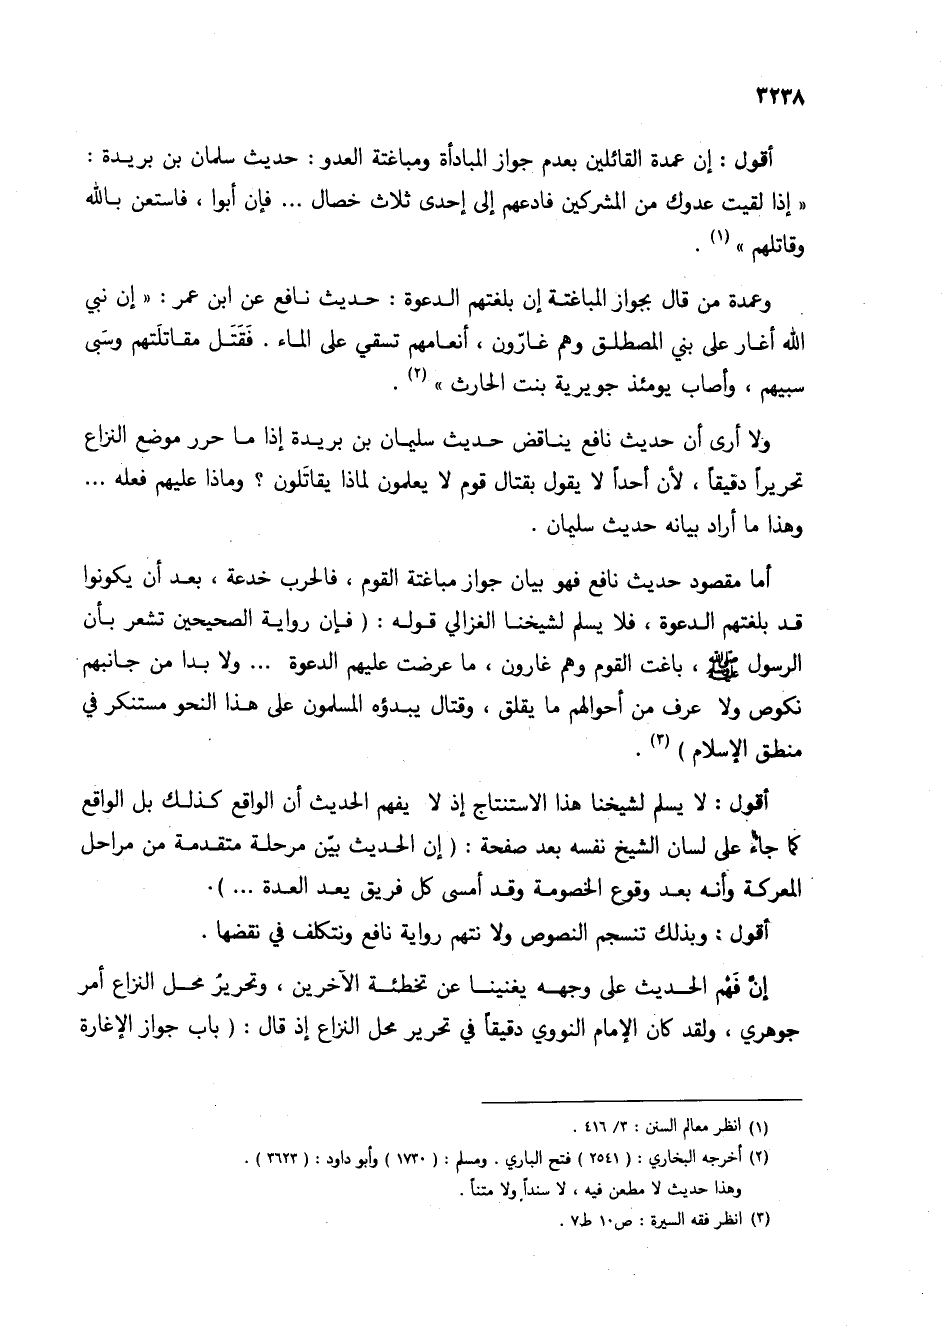 ٣٢٣٨
أقول : إن عمدة القائلين بعدم جواز المبادأة ومباغتة العدو : حديث سلمان بن بريدة :
« إذا لقيت عدوك من المشركين فادعهم إلى إحدى ثلاث خصال ... فإن أبوا ، فاستعن بالله
وقاتلهم » (١) .
وعمدة من قال بجواز المباغتة إن بلغتهم الدعوة : حديث نافع عن ابن عمر : « إن نبي
الله أغار على بني المصطلق وهم غارّون ، أنعامهم تسقي على الماء . فَقَتَل مقاتلَتهم وسَبى
سبيهم ، وأصاب يومئذ جويرية بنت الحارث » (٢) .
ولا أرى أن حديث نافع يناقض حديث سليمان بن بريدة إذا ما حرر موضع النزاع
تحريراً دقيقاً ، لأن أحداً لا يقول بقتال قوم لا يعلمون لماذا يقاتَلون ؟ وماذا عليهم فعله ...
وهذا ما أراد بيانه حديث سليمان .
أما مقصود حديث نافع فهو بيان جواز مباغتة القوم ، فالحرب خدعة ، بعد أن يكونوا
قد بلغتهم الدعوة ، فلا يسلم لشيخنا الغزالي قوله : ( فإن رواية الصحيحين تشعر بأن
الرسول ﷺ ، باغت القوم وهم غارون ، ما عرضت عليهم الدعوة ... ولا بدا من جانبهم
نكوص ولا عرف من أحوالهم ما يقلق ، وقتال يبدؤه المسلمون على هذا النحو مستنكر في
منطق الإسلام ) (٣) .
أقول : لا يسلم لشيخنا هذا الاستنتاج إذ لا يفهم الحديث أن الواقع كذلك بل الواقع
كما جاء على لسان الشيخ نفسه بعد صفحة : ( إن الحديث بيّن مرحلة متقدمة من مراحل
المعركة وأنه بعد وقوع الخصومة وقد أمسى كل فريق يعد العدة ... ) .
أقول : وبذلك تنسجم النصوص ولا نتهم رواية نافع ونتكلف في نقضها .
إنَّ فَهْم الحديث على وجهه يغنينا عن تخطئة الآخرين ، وتحريرُ محل النزاع أمر
جوهري ، ولقد كان الإمام النووي دقيقاً في تحرير محل النزاع إذ قال : ( باب جواز الإغارة
(١) انظر معالم السنن : ٣/ ٤١٦ .
(٢) أخرجه البخاري : ( ٢٥٤١ ) فتح الباري . ومسلم : ( ١٧٣٠ ) وأبو داود : ( ٣٦٢٣ ) .
وهذا حديث لا مطعن فيه ، لا سنداً ولا متناً .
(٣) انظر فقه السيرة : ص١٠ ط٧ .